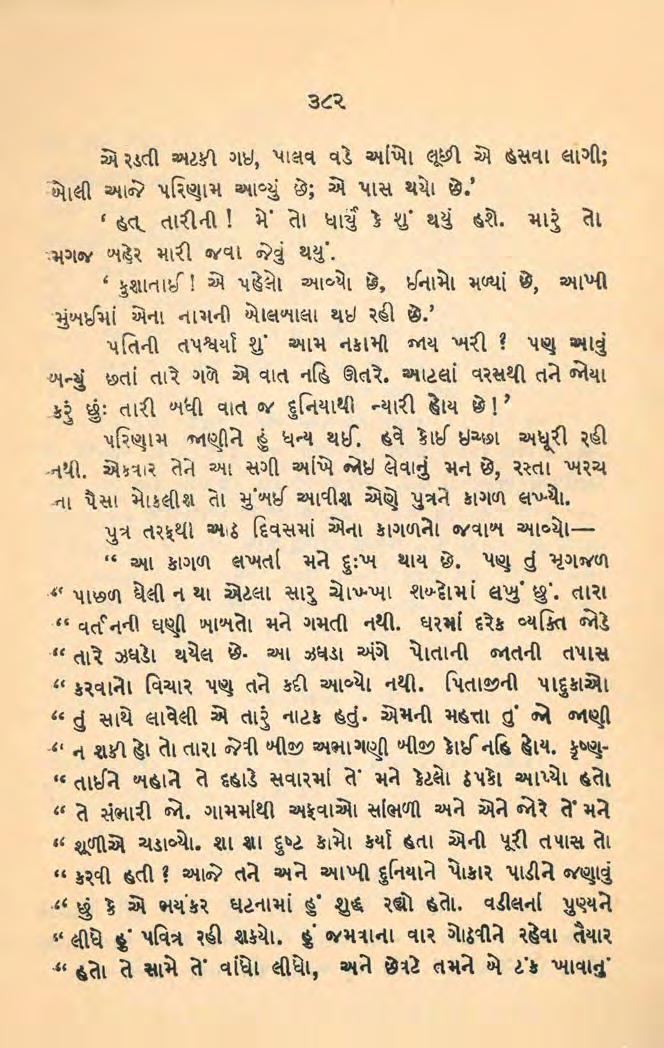 ૩૮૨
એ રડતી અટકી ગઇ, પાલવ વડે આંખો લૂછી એ હસવા લાગી;
બોલી આજે પરિણામ આવ્યું છે; એ પાસ થયો છે.’
‘ હત્ તારીની ! મેં તો ધાર્યું કે શું થયું હશે. મારું તો
મગજ બહેર મારી જવા જેવું થયું.
‘ કુશાતાઈ ! એ પહેલો આવ્યો છે, ઈનામો મળ્યાં છે, આખી
મુંબઈમાં એના નામની બોલબાલા થઇ રહી છે.’
પતિની તપશ્ચર્યા શું આમ નકામી જાય ખરી ? પણ આવું
બન્યું છતાં તારે ગળે એ વાત નહિ ઊતરે. આટલાં વરસથી તને જોયા
કરું છું: તારી બધી વાત જ દુનિયાથી ન્યારી હોય છે ! ’
પરિણામ જાણીને હું ધન્ય થઈ. હવે કોઈ ઇચ્છા અધૂરી રહી
નથી. એકવાર તેને આ સગી આંખે જોઇ લેવાનું મન છે, રસ્તા ખરચ
ના પૈસા મોકલીશ તો મુંબઈ આવીશ એણે પુત્રને કાગળ લખ્યો.
પુત્ર તરફથી આઠ દિવસમાં એના કાગળનો જવાબ આવ્યો—
“ આ કાગળ લખતાં મને દુઃખ થાય છે. પણ તું મૃગજળ
“ પાછળ ઘેલી ન થા એટલા સારુ ચોખ્ખા શબ્દોમાં લખું છું. તારા
“ વર્તનની ઘણી બાબતો મને ગમતી નથી. ઘરમાં દરેક વ્યક્તિ જોડે
“ તારે ઝઘડો થયેલ છે. આ ઝઘડા અંગે પોતાની જાતની તપાસ
“ કરવાનો વિચાર પણ તને કદી આવ્યો નથી. પિતાજીની પાદુકાઓ
“ તું સાથે લાવેલી એ તારું નાટક હતું. એમની મહત્તા તું જો જાણી
“ ન શકી હો તો તારા જેવી બીજી અભાગણી બીજી કોઈ નહિ હોય. કૃષ્ણ-
“ તાઈને બહાને તે દહાડે સવારમાં તેં મને કેટલો ઠપકો આપ્યો હતો
“ તે સંભારી જો. ગામમાંથી અફવાઓ સાંભળી અને એને જોરે તેં મને
“ શૂળીએ ચડાવ્યો. શા શા દુષ્ટ કામો કર્યાં હતા એની પૂરી તપાસ તો
“ કરવી હતી ? આજે તને અને આખી દુનિયાને પોકાર પાડીને જણાવું
“ છું કે એ ભયંકર ઘટનામાં હું શુદ્ધ રહ્યો હતો. વડીલનાં પુણ્યને
“ લીધે હું પવિત્ર રહી શક્યો. હું જમવાના વાર ગોઠવીને રહેવા તૈયાર
“ હતો તે સામે તેં વાંધો લીધો, અને છેવટે તમને બે ટંક ખાવાનું